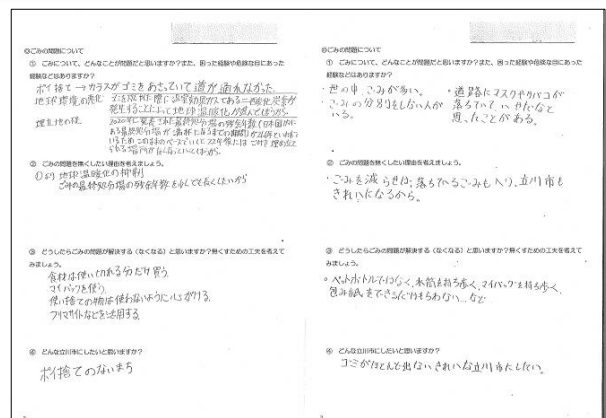 ◎ごみの問題について
① ごみについて、どんなことが問題だと思いますか?また、困った経験や危険な目にあった
経験などはありますか?
ポイ捨て → カラスがゴミをあさっていて道が通れなかった。
地球環境の悪化
ゴミを燃やした際に温室効果ガスである二酸化炭素が
発生することによって地球温暖化が進んでしまうから。
② ごみの問題を無くしたい理由を考えましょう。
①より 地球温暖化の抑制
ごみの最終処分場の残余年数を少しでも長くしたいから
③ どうしたらごみの問題が解決する(なくなる)と思いますか?無くすための工夫を考えて
みましょう。
食材は使い切れる分だけ買う
マイバッグを使う
使い捨ての物は使わないように心がける
フリマサイトなどを活用する
④ どんな立川市にしたいと思いますか?
ポイ捨てのないまち
◎ごみの問題について
① ごみについて、どんなことが問題だと思いますか?また、困った経験や危険な目にあった
経験などはありますか?
・世の中、ごみが多い。
・ごみの分別をしない人が
いる。
・道路にマスクやタバコが
落ちていて、いやだなと
思ったことがある。
② ごみの問題を無くしたい理由を考えましょう。
・ごみを減らせば、落ちているごみも減り、立川市も
きれいになるから。
③ どうしたらごみの問題が解決する(なくなる)と思いますか?無くすための工夫を考えて
みましょう。
・ペットボトルではなく、水筒を持ち歩く、マイバッグを持ち歩く、
包み紙をできるだけもらわない…など
④ どんな立川市にしたいと思いますか?
ゴミがほとんど出ないきれいな立川市にしたい。